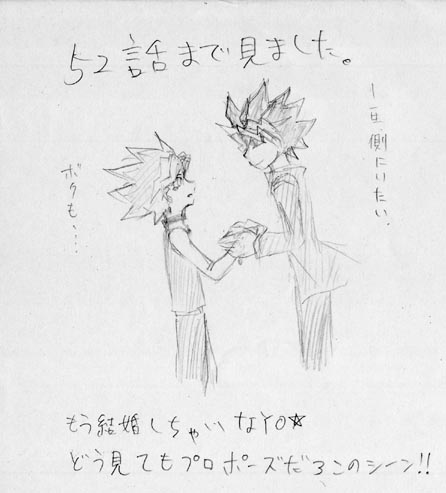 52話まで見ました。
一生側にいたい。
ボクも、…
もう結婚しちゃいなYO☆
どう見てもプロポーズだろこのシーン!!